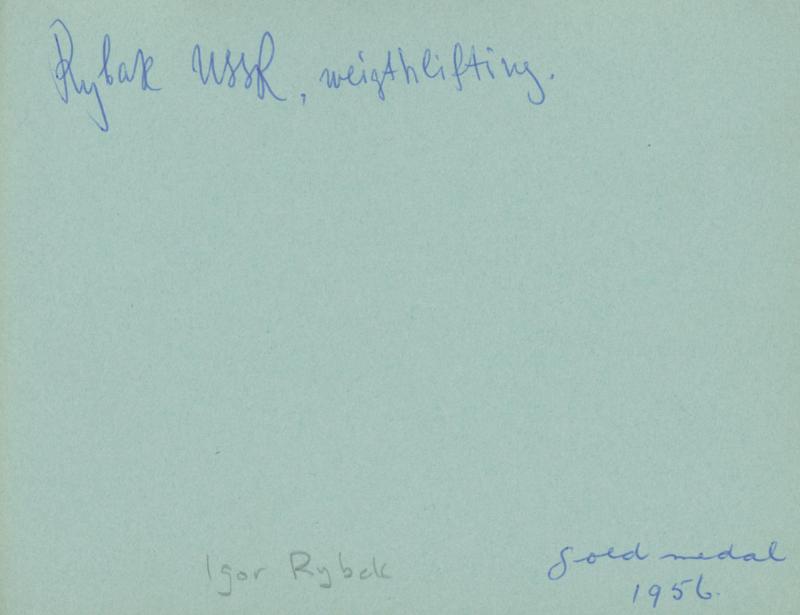 Rybak USSR, weigthlifting.
Igor Rybak
gold medal
1956.